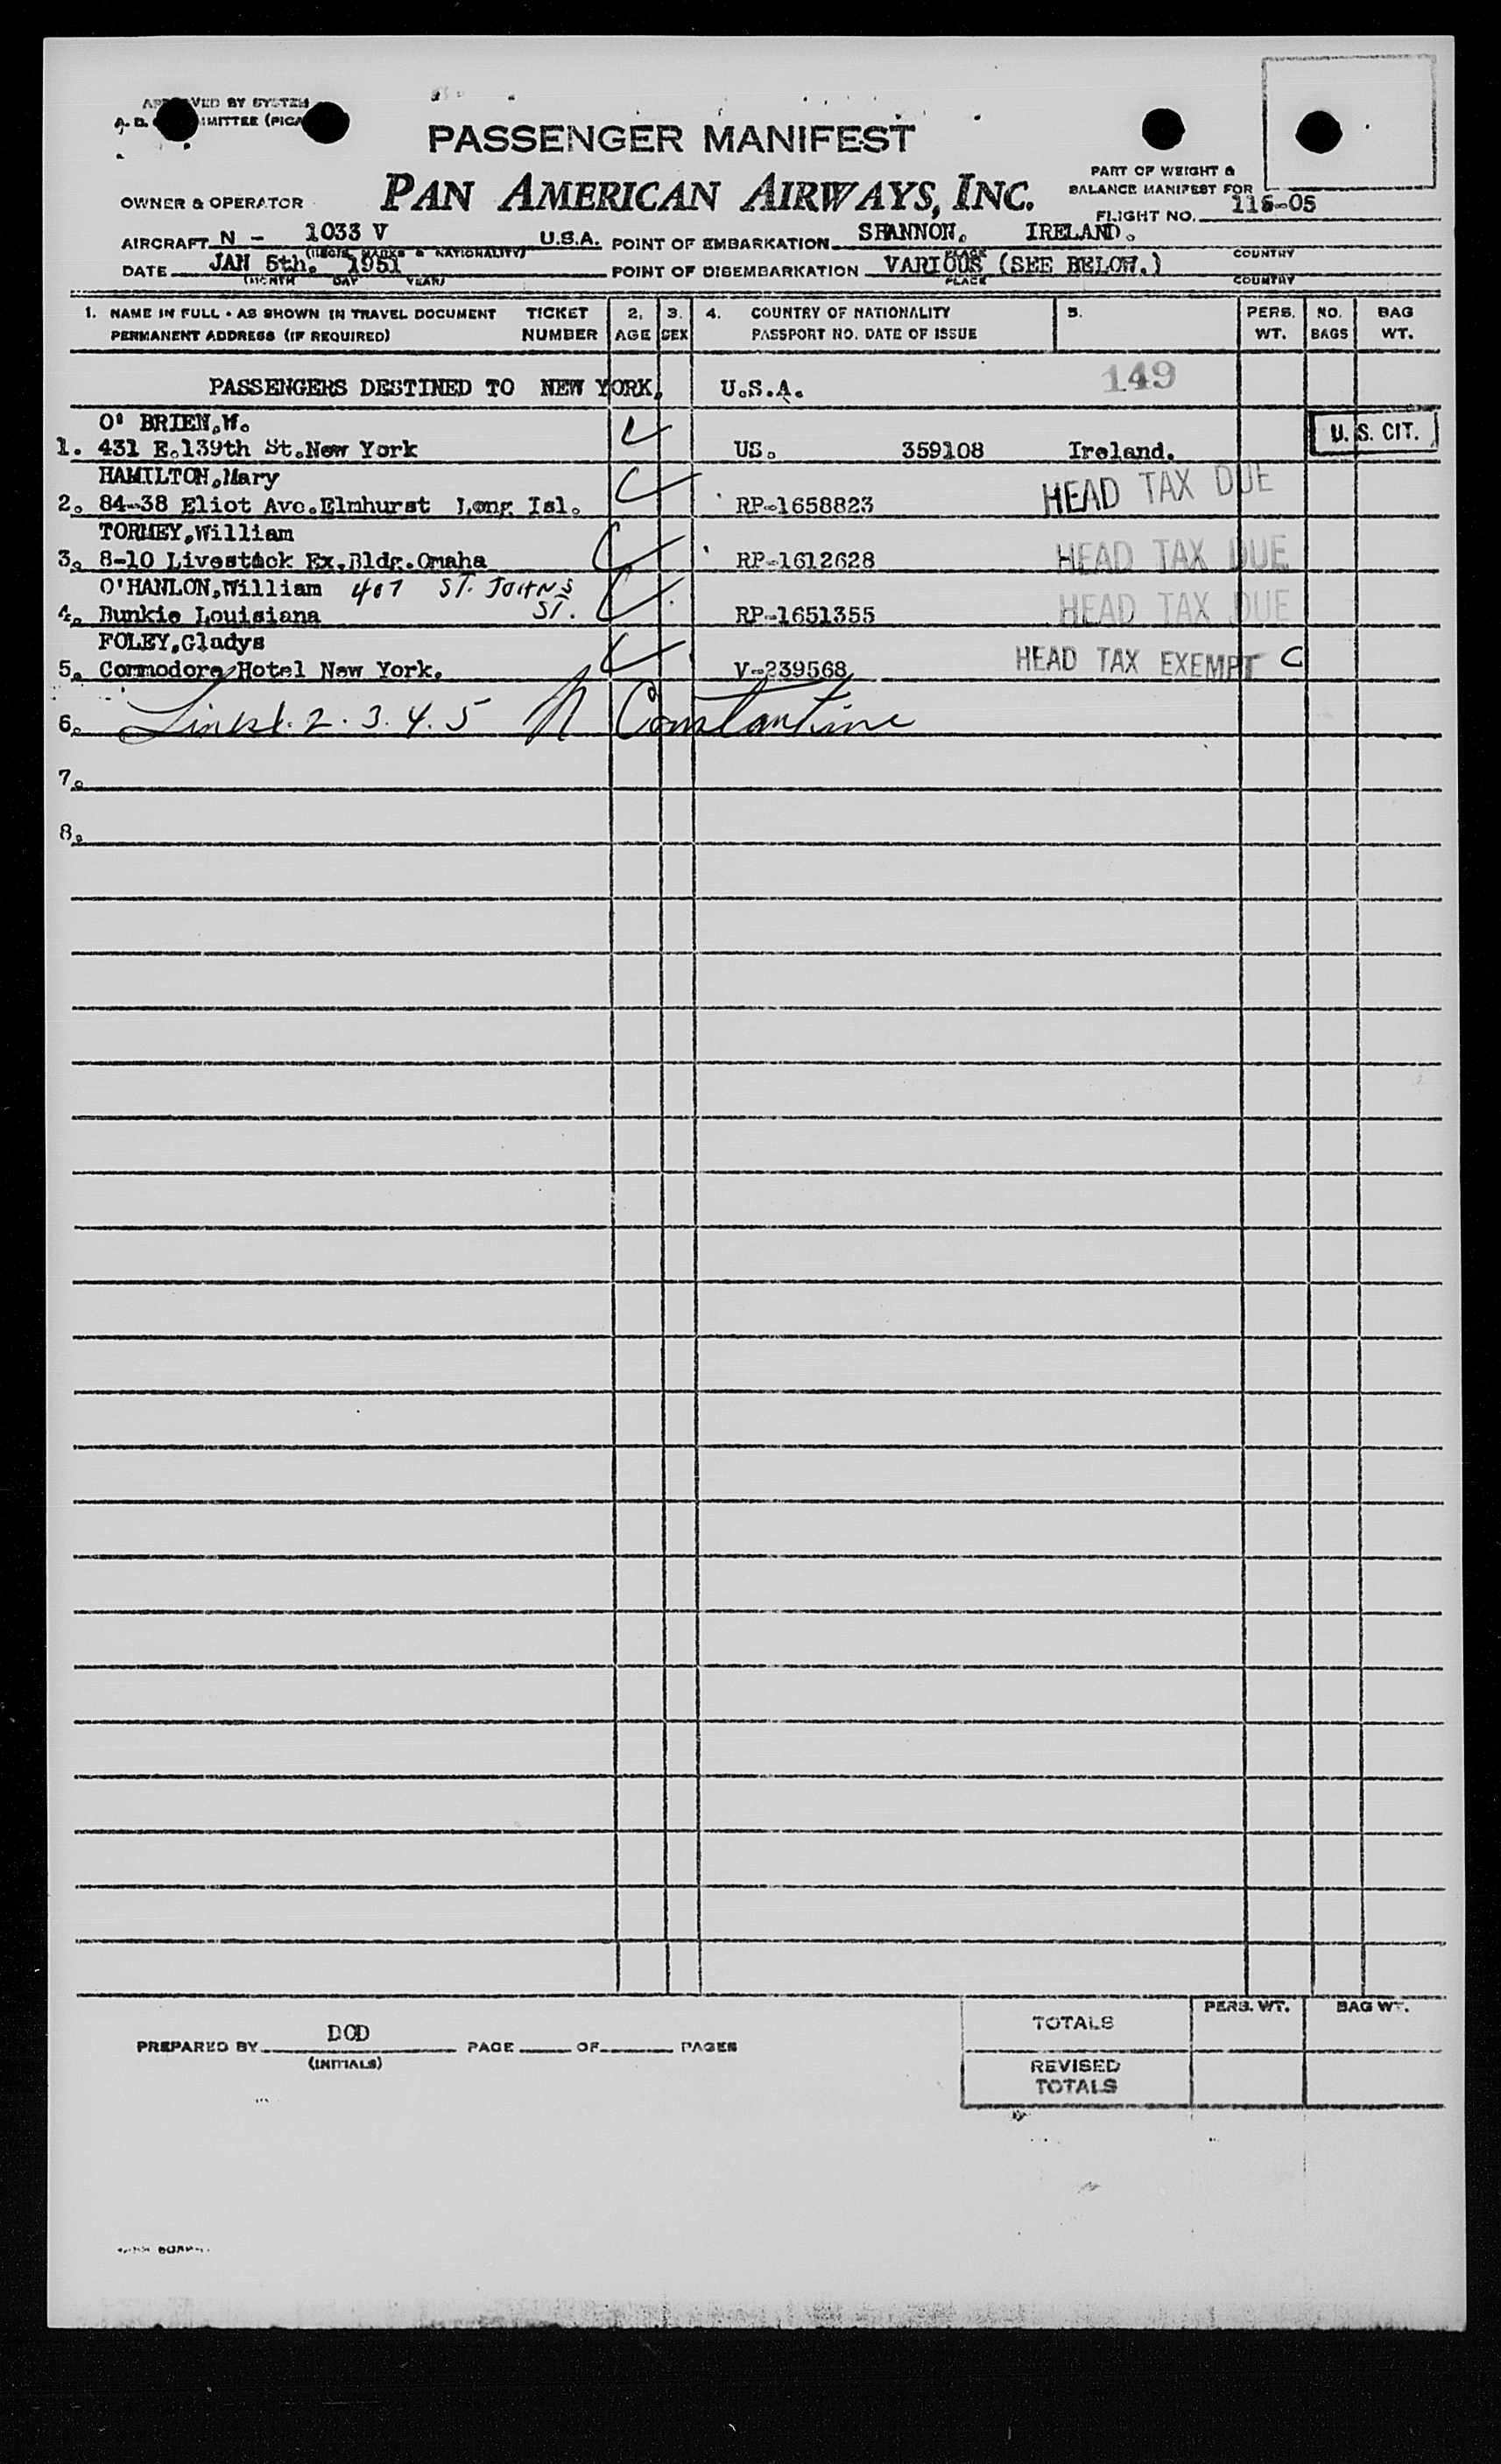 PASSENGER MANIFEST
PAN AMERICAN AIRWAYS, INC.
OWNER & OPERATOR
PART OF WEIGHT &
BALANCE MANIFEST FOR
FLIGHT NO. 115-05
AIRCRAFT N - 1033 V U.S.A. POINT OF EMBARKATION SHANNON. IRELAND.
PLACE COUNTRY
DATE JAN 5th. 1951 POINT OF DISEMBARKATION VARIOUS (SEE BELOW.)
(MONTH DAY YEAR) PLACE COUNTRY
1. NAME IN FULL - AS SHOWN IN TRAVEL DOCUMENT TICKET 2. 3. 4. COUNTRY OF NATIONALITY 5. PERS. NO. BAG
PERMANENT ADDRESS (IF REQUIRED) NUMBER AGE SEX PASSPORT NO. DATE OF ISSUE WT. BAGS WT.
PASSENGERS DESTINED TO NEW YORK, U.S.A. 149
O' BRIEN,W.
1. 431 E.139th St.New York US. 359108 Ireland. U.S. CIT.
HAMILTON,Mary
2. 84-38 Eliot Ave.Elmhurst Long Isl. RP-1658823 HEAD TAX DUE
TORMEY,William
3. 8-10 Livestock Ex.Bldg.Omaha RP-1612628 HEAD TAX DUE
O'HANLON,William 407 ST. JOHNS
4. Bunkie Louisiana ST. RP-1651355 HEAD TAX DUE
FOLEY,Gladys
5. Commodore Hotel New York. V-239568 HEAD TAX EXEMPT C
6. Lines 1. 2. 3. 4. 5 N Constantine
7.
8.
TOTALS PERS. WT. BAG WT.
PREPARED BY DOD PAGE OF PAGES
(INITIALS)
REVISED
TOTALS